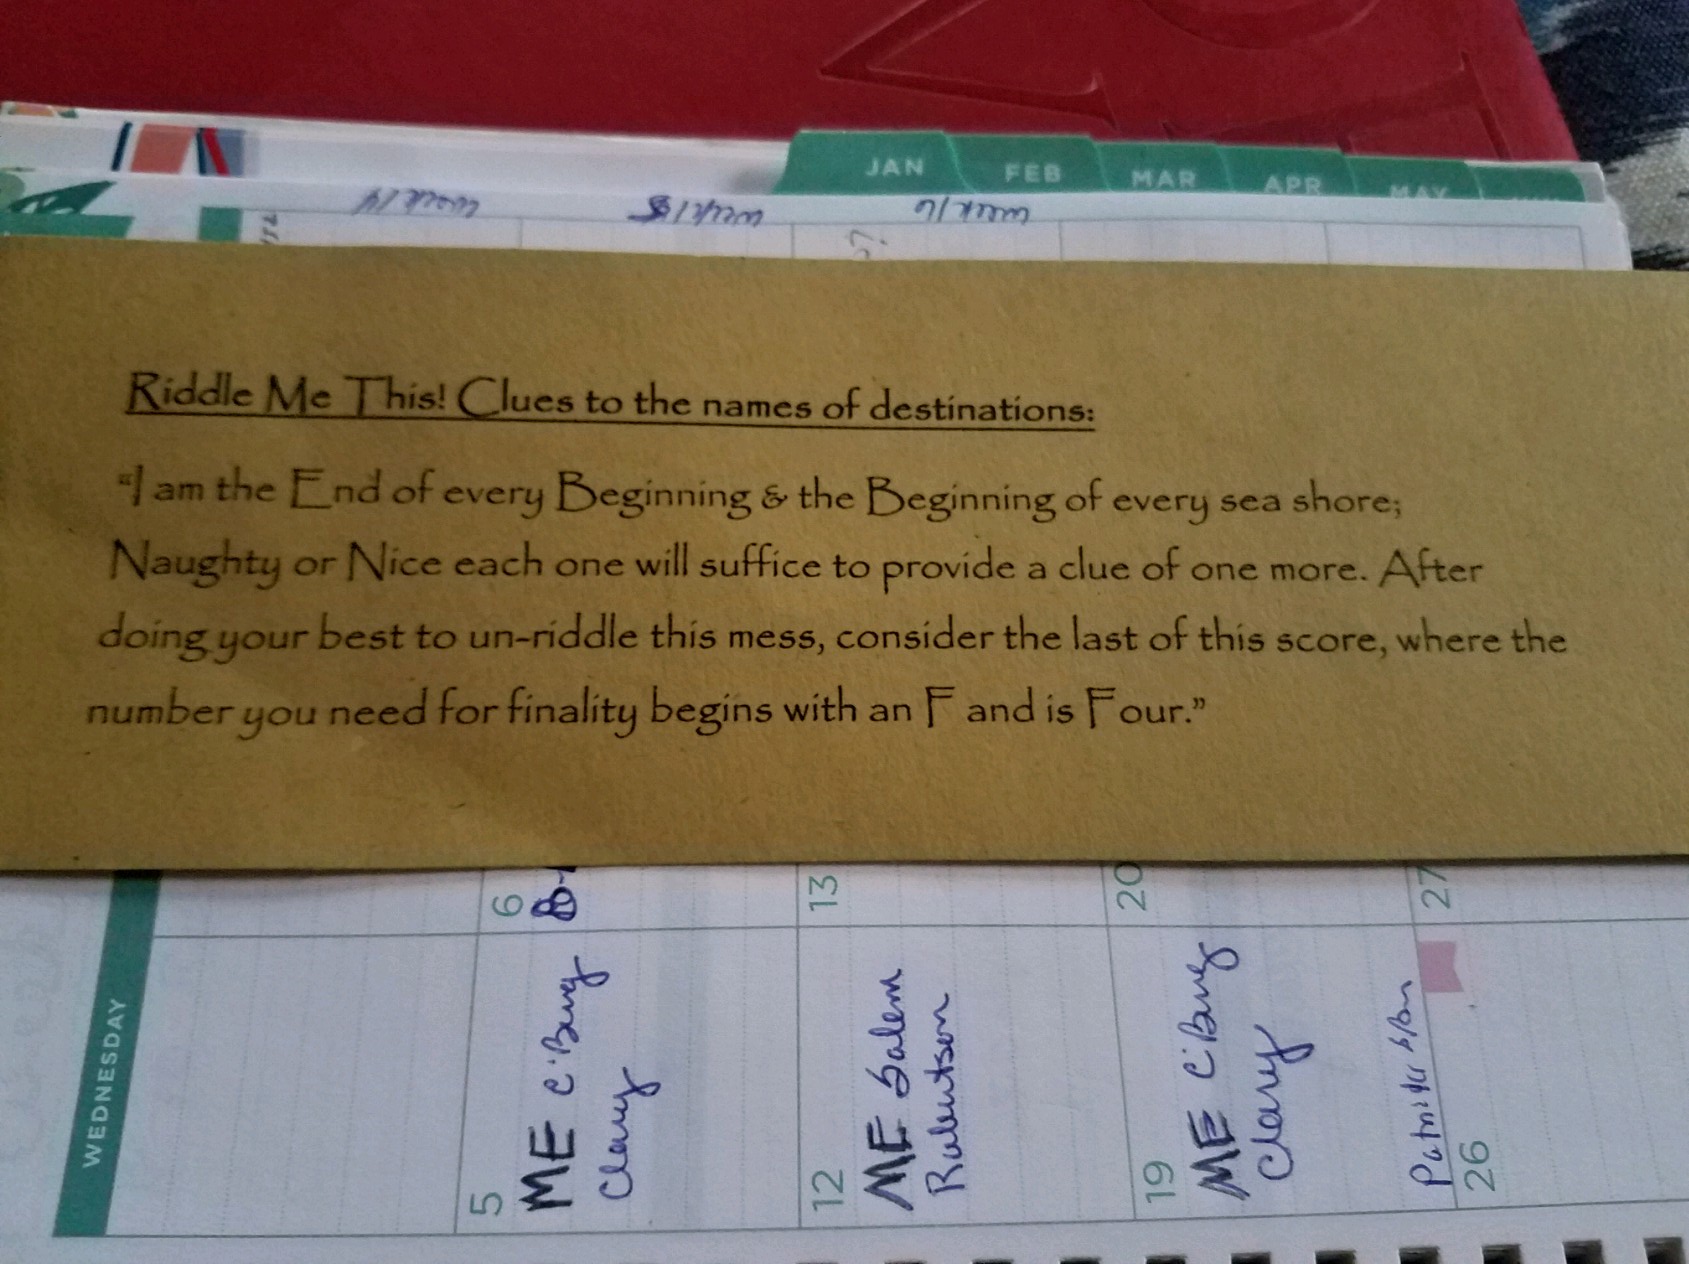 JAN FEB MAR APR MAY
week 14 week 15 week 16
Riddle Me This! Clues to the names of destinations:
“I am the End of every Beginning & the Beginning of every sea shore;
Naughty or Nice each one will suffice to provide a clue of one more. After
doing your best to un-riddle this mess, consider the last of this score, where the
number you need for finality begins with an F and is Four.”
6
13
20
27
WEDNESDAY
5
ME C'Burg
Clary
12
ME Salem
19
ME C'Burg
Clary
26